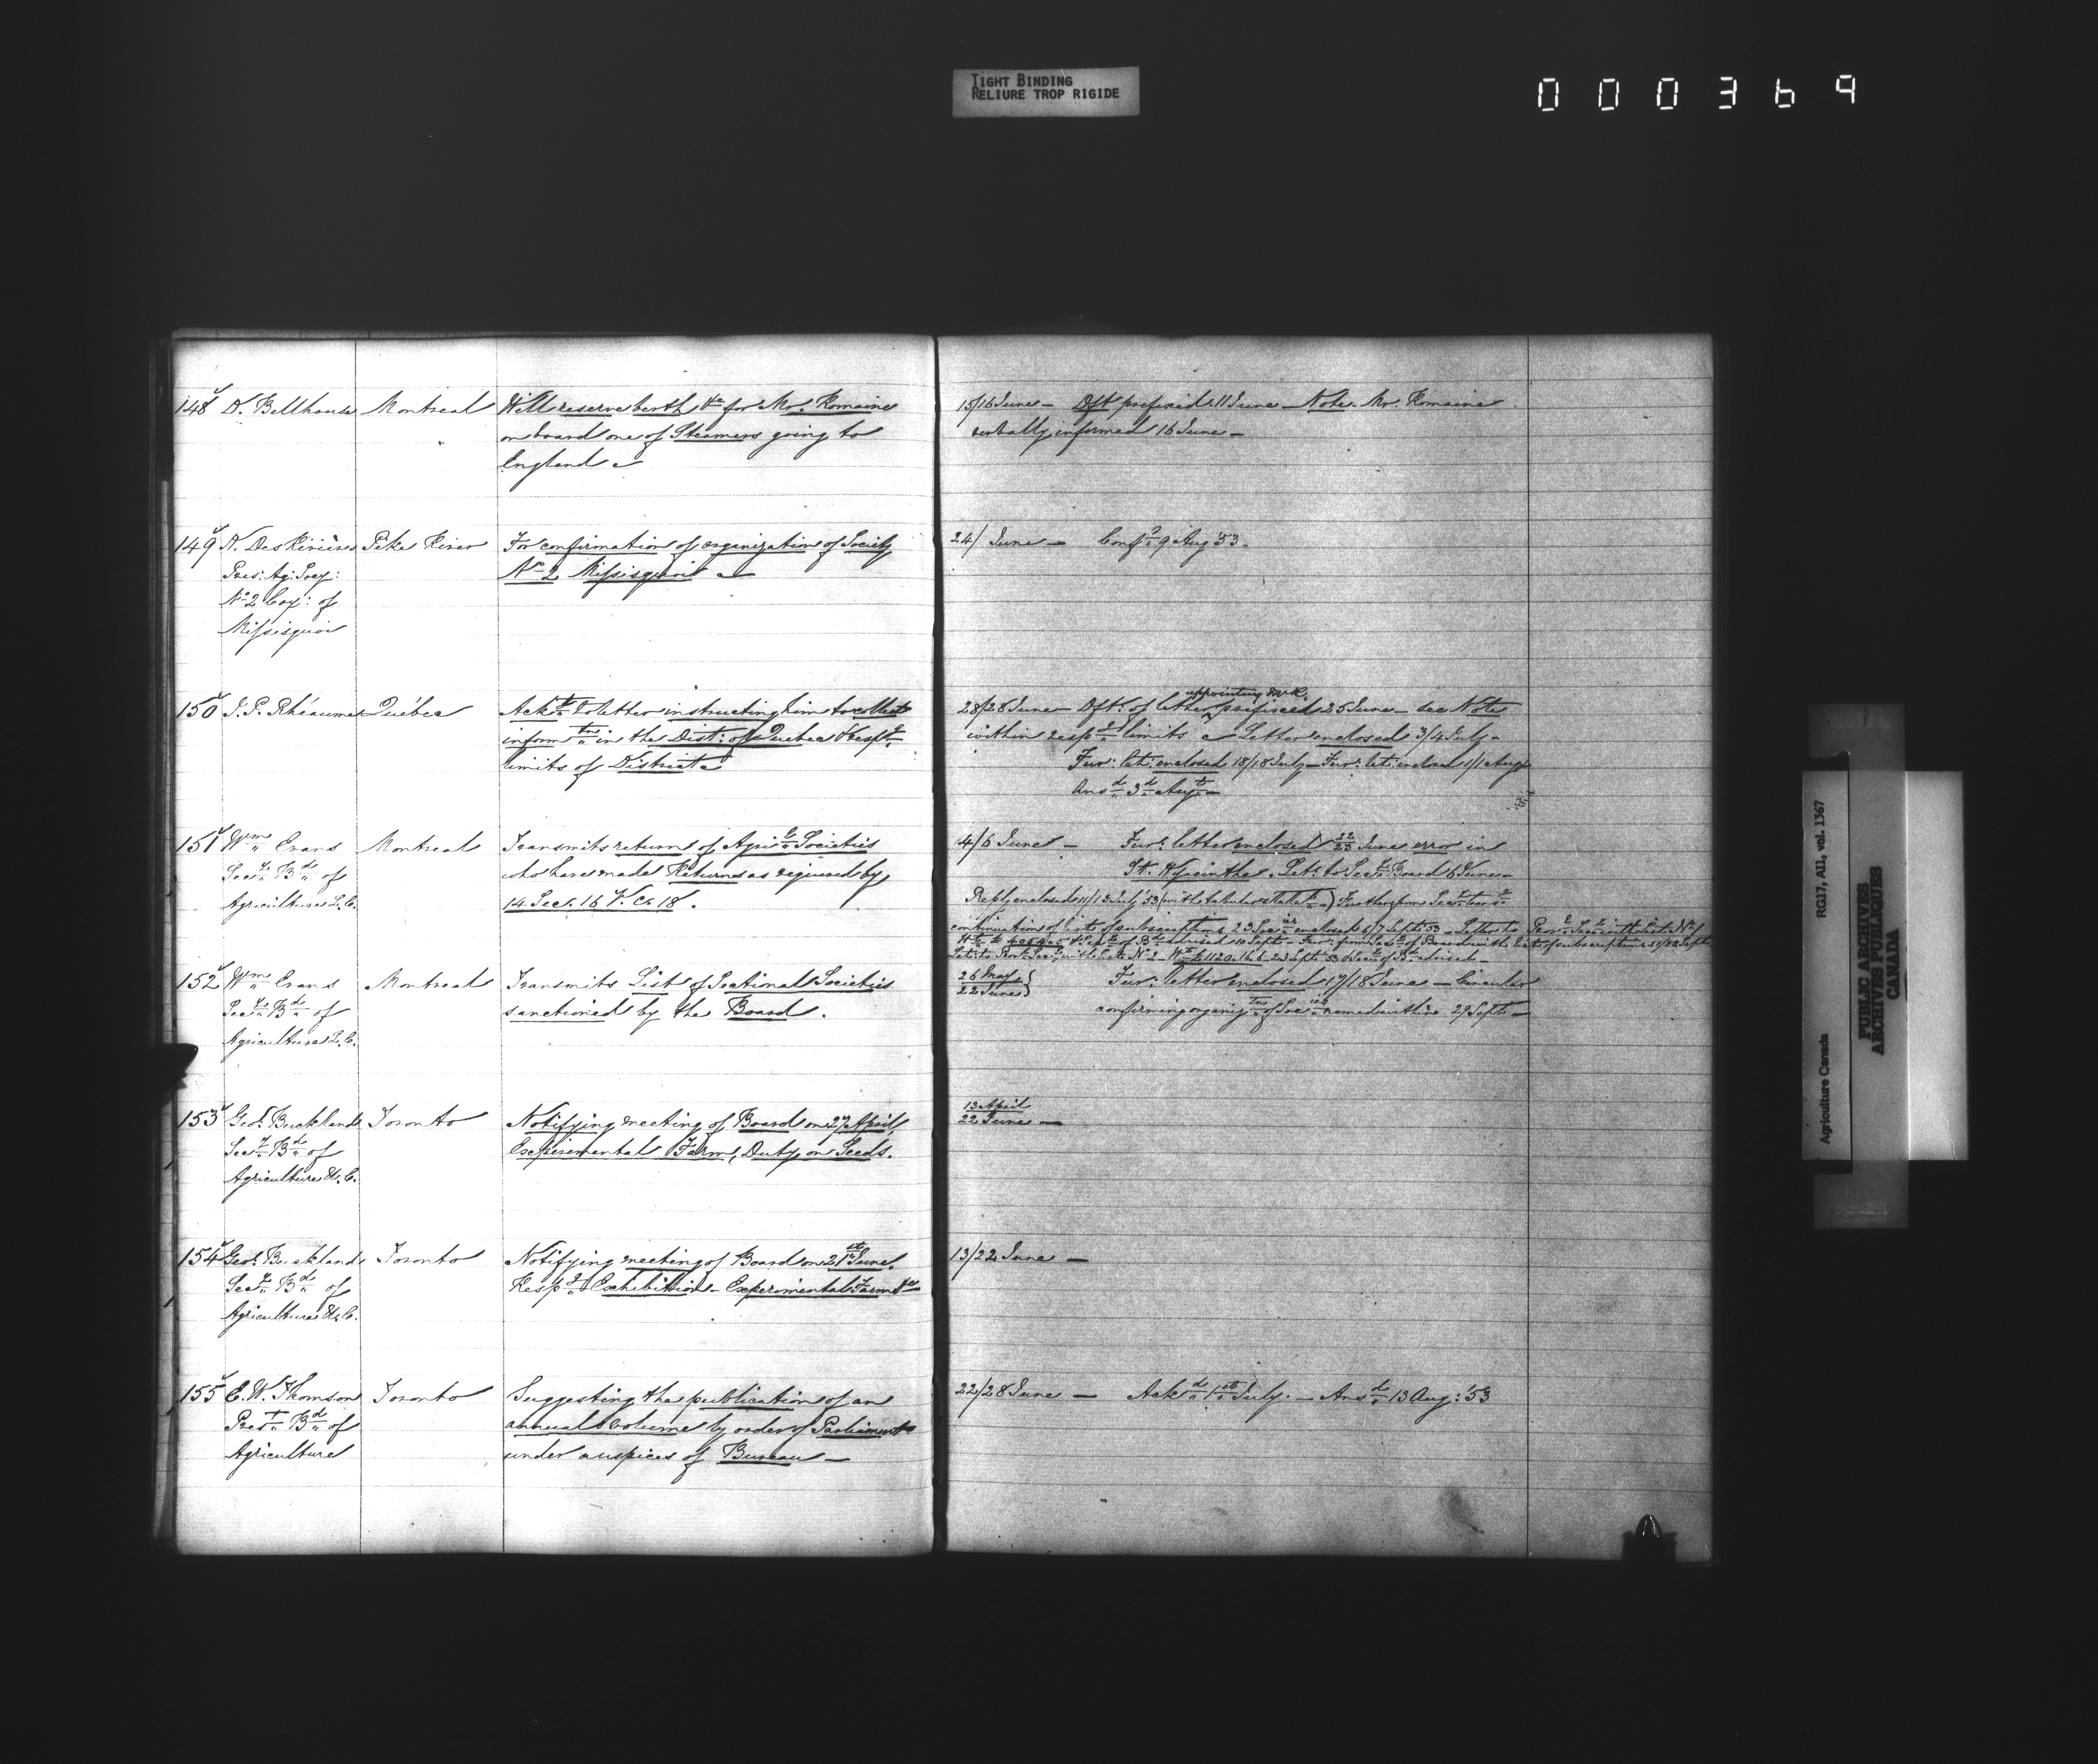 TIGHT BINDING
RELIURE TROP RIGIDE
000369
148 D. Bellhouse Montreal Will reserve berth &c for Mr. Romaine
on board one of Steamers going to
England
15/16 June — Dft prefixed 11 June — Note Mr. Romaine
verbally informed 16 June —
149 Des Rivières Pike River For confirmation of organization of Society
Pres: Ag: Socy:
No 2 Missisquoi —
No 2 Coy: of
Missisquoi
24/ June — Conf 9 Aug 53.
150 J. P. Rhéaume Québec Ackg letter instructing him to collect
inform tn in the Dist: of Quebec & respg
limits of District
28/28 June — Dft. of letter appointing Mr R. prefixed 25 June — see Note
within respg limits & Letter enclosed 3/4 July —
Fur: let: enclosed 18/18 July — Fur: let: enclosed 1/1 Augt
Ansd 3d Augt —
151 Wm Evans Montreal Transmits return of Agril Societies
Secy Bd of who have made Returns as required by
Agriculture L. C. 14 Sec. 16 V. c. 18.
4/6 June — Fur: letter enclosed 22/23 June error in
St. Hyacinthe. Let: to Secy Board 6 June —
Reply enclosed 11/13 July 53 (with tabular Statet) Further from Secy
continuation of lists of subscriptions enclosed 6/7 Sept 53 — Letter to Provl Secy with List No 1
of Bd advised 10 Sept — Fur: from Secy of Board with Lists of subscriptions Sept
Let: to Provl Secy with List No 2 Sept 53 & Secy of Bd advised —
152 Wm Evans Montreal Transmits List of Sectional Societies
Secy Bd of sanctioned by the Board.
Agriculture L. C.
26 May
22 June } Fur: letter enclosed 17/18 June — Circular
confirming organiz tn of Soc ies named within 29 Sept —
153 Geo. Buckland Toronto Notifying meeting of Board on 27 April,
Secy Bd of Experimental Farm, Duty on Seeds.
Agriculture U. C.
13 April
22 June —
154 Geo. Buckland Toronto Notifying meeting of Board on 21st June.
Secy Bd of Respg Exhibition — Experimental Farm &c
Agriculture U. C.
13/22 June —
155 E. W. Thomson Toronto Suggesting the publication of an
Prest Bd of annual volume by order of Parliament
Agriculture under auspices of Bureau —
22/28 June — Ackd 1st July. — Ansd 13 Aug: 53
Agriculture Canada RG17, AII, vol. 1367
PUBLIC ARCHIVES
ARCHIVES PUBLIQUES
CANADA